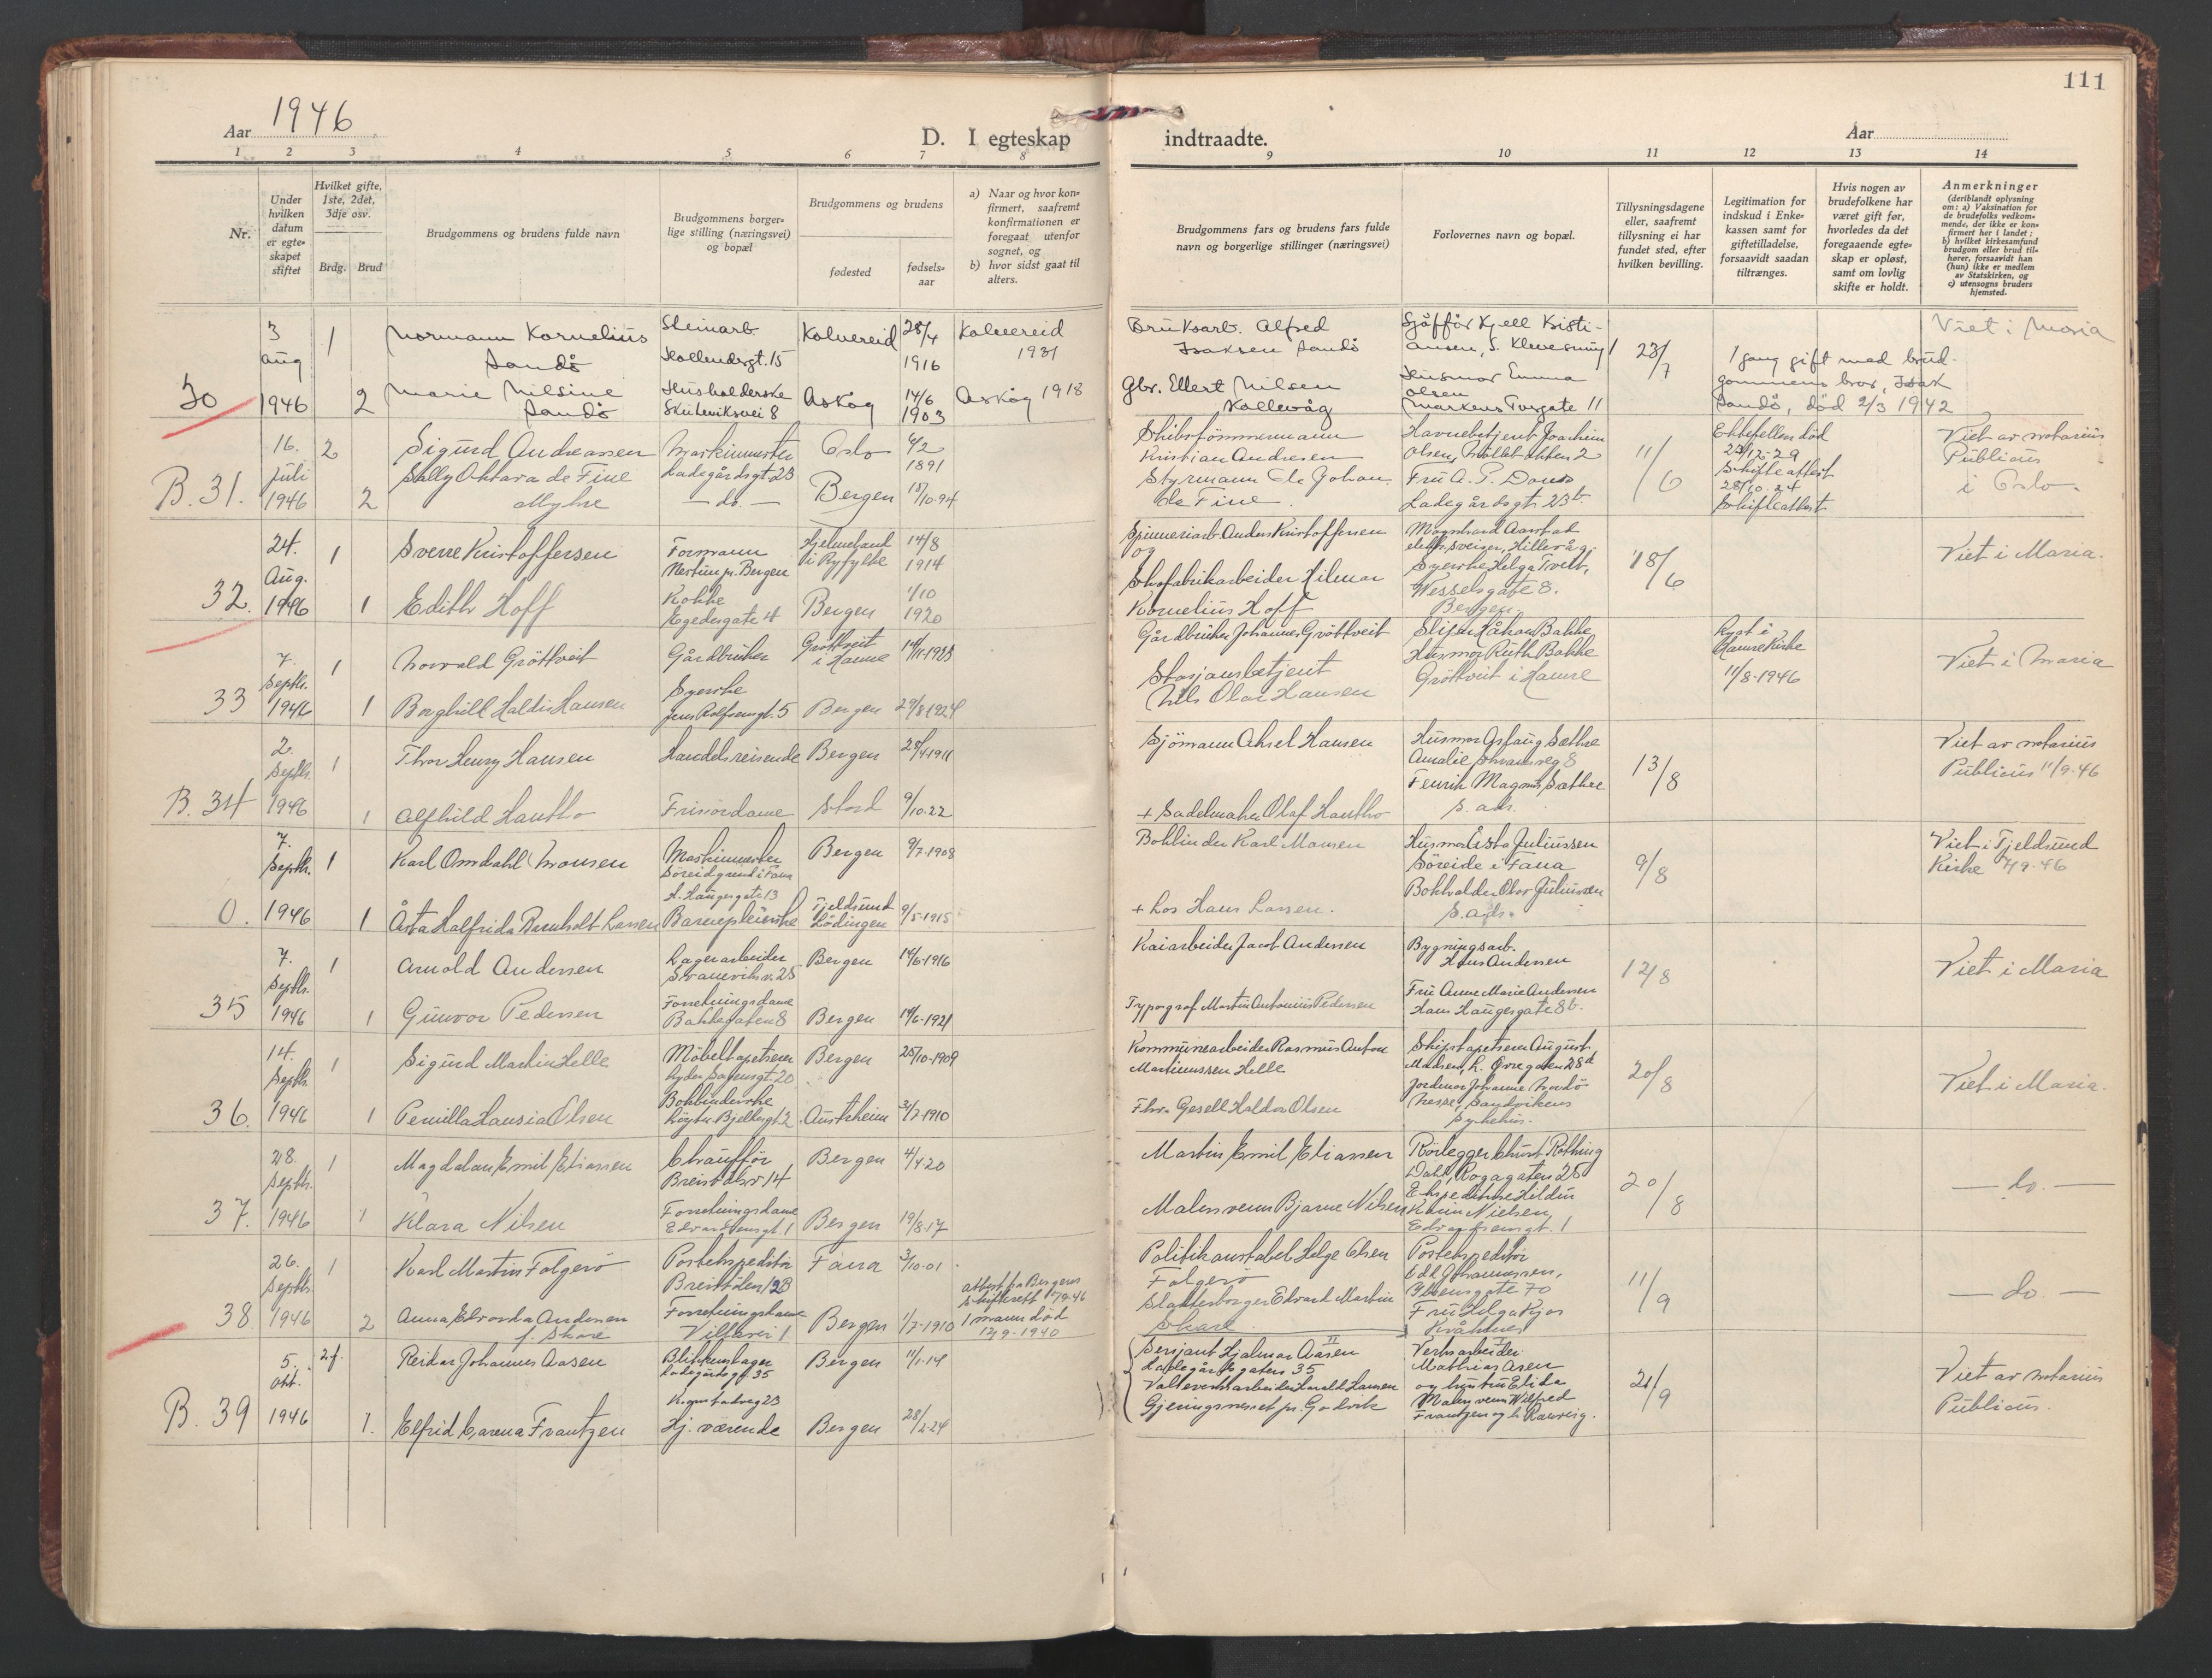 111
Aar 1946
D. I egteskap indtraadte.
Aar
1 2 3 4 5 6 7 8 9 10 11 12 13 14
Nr.
Under hvilken datum er egte-skapet stiftet
Hvilket gifte, 1ste, 2det, 3dje osv.
Brdg. Brud
Brudgommens og brudens fulde navn
Brudgommens borger-lige stilling (næringsvei) og bopæl
Brudgommens og brudens
fødested
fødsels-aar
a) Naar og hvor kon-firmert, saafremt konfirmationen er foregaat utenfor sognet, og
b) hvor sidst gaat til alters.
Brudgommens fars og brudens fars fulde navn og borgerlige stillinger (næringsvei)
Forlovernes navn og bopæl.
Tillysningsdagene eller, saafremt tillysning ei har fundet sted, efter hvilken bevilling.
Legitimation for indskud i Enke-kassen samt for giftetilladelse, forsaavidt saadan tiltrænges.
Hvis nogen av brudefolkene har været gift før, hvorledes da det foregaaende egte-skap er opløst, samt om lovlig skifte er holdt.
Anmerkninger (deriblandt oplysning om: a) Vaksination for de brudefolks vedkom-mende, der ikke er kon-firmert her i landet; b) hvilket kirkesamfund brudgom eller brud til-hører, forsaavidt han (hun) ikke er medlem av Statskirken, og c) utensogns bruders hjemsted.
30
3 aug 1946
1
Normann Kornelius Sandö
Steinarb Hollendergt. 15
Kolvereid
28/4 1916
Kolvereid 1931
Bruksarb. Alfred Isaksen Sandö
Sjåffør Kjell Kristiansen
23/7
1 gang gift med brudgommens bror, Isak Sandö, død 2/3 1942
Viet i Maria
2
Marie Nilsine Sandö
Husholderske Skuteviksvei 8
Askøy
14/6 1903
Askøy 1918
Gbr. Ellert Nilsen Kollevåg
Husmor Emma Olsen Markus Torsgate 11
B. 31.
16. Juli 1946
2
Sigurd Andreassen
Maskinmester Ladegårdsgt 23
Oslo
6/2 1891
Skibstömmermann Kristian Andresen
Havnebetjent Joachim Olsen, Möllebakken 2
11/6
Ektefellen död 23/12-29 Skifteattest 28/10.24 Skifteattest
Viet av notarius Publicus i Oslo.
2
Selly Oktava de Fine Myhre
— do. —
Bergen
18/10.94
Styrmann Ole Johan de Fine
Fru A. P. Ladegårdsgt. 23b
32.
24. Aug. 1946
1
Sverre Kristoffersen
Formann Nestun pr. Bergen
Hjelmeland i Ryfylke
14/8 1914
Spinneriarb Anders Kristoffersen og
Magnhard Aarstad elektr. sveiser,
18/6
Viet i Maria.
1
Edith Hoff
Kokke Egedesgate 4
Bergen
1/10 1920
Skofabrikarbeider Hilmar Kornelius Hoff
Syerske Helga Tveit, Wesselsgate 8. Bergen.
33
7. Septbr. 1946
1
Norvald Gröttveit
Gårdbruker
Gröttveit i Hamre
14/11-1923
Gårdbruker Johannes Gröttveit
Håkon Bakke Husmor Ruth Bakke Gröttveit i Hamre
Lyst i Hamre Kirke 11/8-1946
Viet i Maria
1
Borghild Haldis Hansen
Syerske Jens Rolfsensgt. 5
Bergen
29/8 1924
Stasjonsbetjent Nils Olai Hansen
B. 34
2. Septbr. 1946
1
Thor Henry Hansen
Handelsreisende
Bergen
28/4.1911
Sjömann Aksel Hansen
Husmor Asfaug Sæthre Amalie Skramsveg 8
13/8
Viet av notarius Publicus 11/9-46
1
Alfhild Hantho
Frisördame
Stord
9/10.22
+ Sadelmaker Olaf Hantho
Fenrik Magnus Sæthre s. adr.
0.
7. Septbr. 1946
1
Karl Omdahl Monsen
Maskinmester Söreidgrend i Fana
Bergen
9/7.1908
Bokbinder Karl Monsen
Husmor Esta Juliussen Söreide i Fana
9/8
Viet i Tjeldsund Kirke 7/9-46
1
Åsta Halfrida Ramholt Larsen
H. Haugesgate 13 Barnepleierske
Tjeldsund Lödingen
9/5-1915
+ Los Hans Larsen.
Bokholder Olav Juliussen s. adr.
35
7. Septbr. 1946
1
Arnold Andersen
Lagerarbeider Svaneviksv. 25
Bergen
14/6-1916
Kaiarbeider Jacob Andersen
Bygningsarb. Hans Andersen
12/8
Viet i Maria
1
Gunvor Pedersen
Forretningsdame Bakkegaten 8
Bergen
14/6-1921
Typograf Martin Antonius Pedersen
Fru Anne Marie Andersen Hans Haugesgate 8b.
36.
14. Septbr. 1946
1
Sigurd Martin Helle
Möbeltapetserer Lyder Sagensgt. 20
Bergen
25/10-1909
Kommunearbeider Rasmus Anton Martinussen Helle
Skipstapetserer August Madsen, L. Övregaten 28d
20/8
Viet i Maria.
1
Pernilla Hansia Olsen
Bokbinderske
Austrheim
3/7-1910
Fhv. Gesell Haldor Olsen
Jordmor Johanne Nordö Nesse, Sandvikens Sykehus.
37.
28. Septbr. 1946
1
Magdalon Emil Eliassen
Chauffør Breistølsv. 14
Bergen
4/4 20
Martin Emil Eliassen
Rörlegger Dahl, Rogagaten 25
20/8
— do. —
1
Klara Nilsen
Forretningsdame Edvardsensgt. 1
Bergen
19/8.17
Malersvenn Bjarne Nilsen
Ekspeditrise Hildur Karin Nielsen, Edvardsensgt. 1
38.
26. Septbr. 1946
1
Karl Martin Falgerö
Postekspeditör Breistölen 12B
Fana
3/10-01
Politikonstabel Helge Olsen Falgerö
Postekspeditör Odd Johannessen, Ibsensgate 70
11/9
— do. —
2
Anna Edvarda Andersen f. Skare
Forretningsdame Villavei 1
Bergen
1/7-1910
attest fra Bergens Skifterett 7/9-46 1 mann död 12/9-1940
Slakterborger Edvard Martin Skare
Fru Helga Kjos
B. 39
5. Okt. 1946
2. f.
Reidar Johannes Aasen
Blikkenslager Ladegårdsgt. 35
Bergen
11/1-14
Sersjant Hjalmar Aasen II Ladegårdsgaten 35
Verksarbeider I Mathias Asen og hustru Elida
21/9
Viet av notarius Publicus.
1.
Elfrid Carena Frantzen
Hj. værende
Bergen
28/2-24
Harald Hansen Gjerningsneset pr. Godvik
Malersvenn Wilfred Frantzen og h. Ranveig.